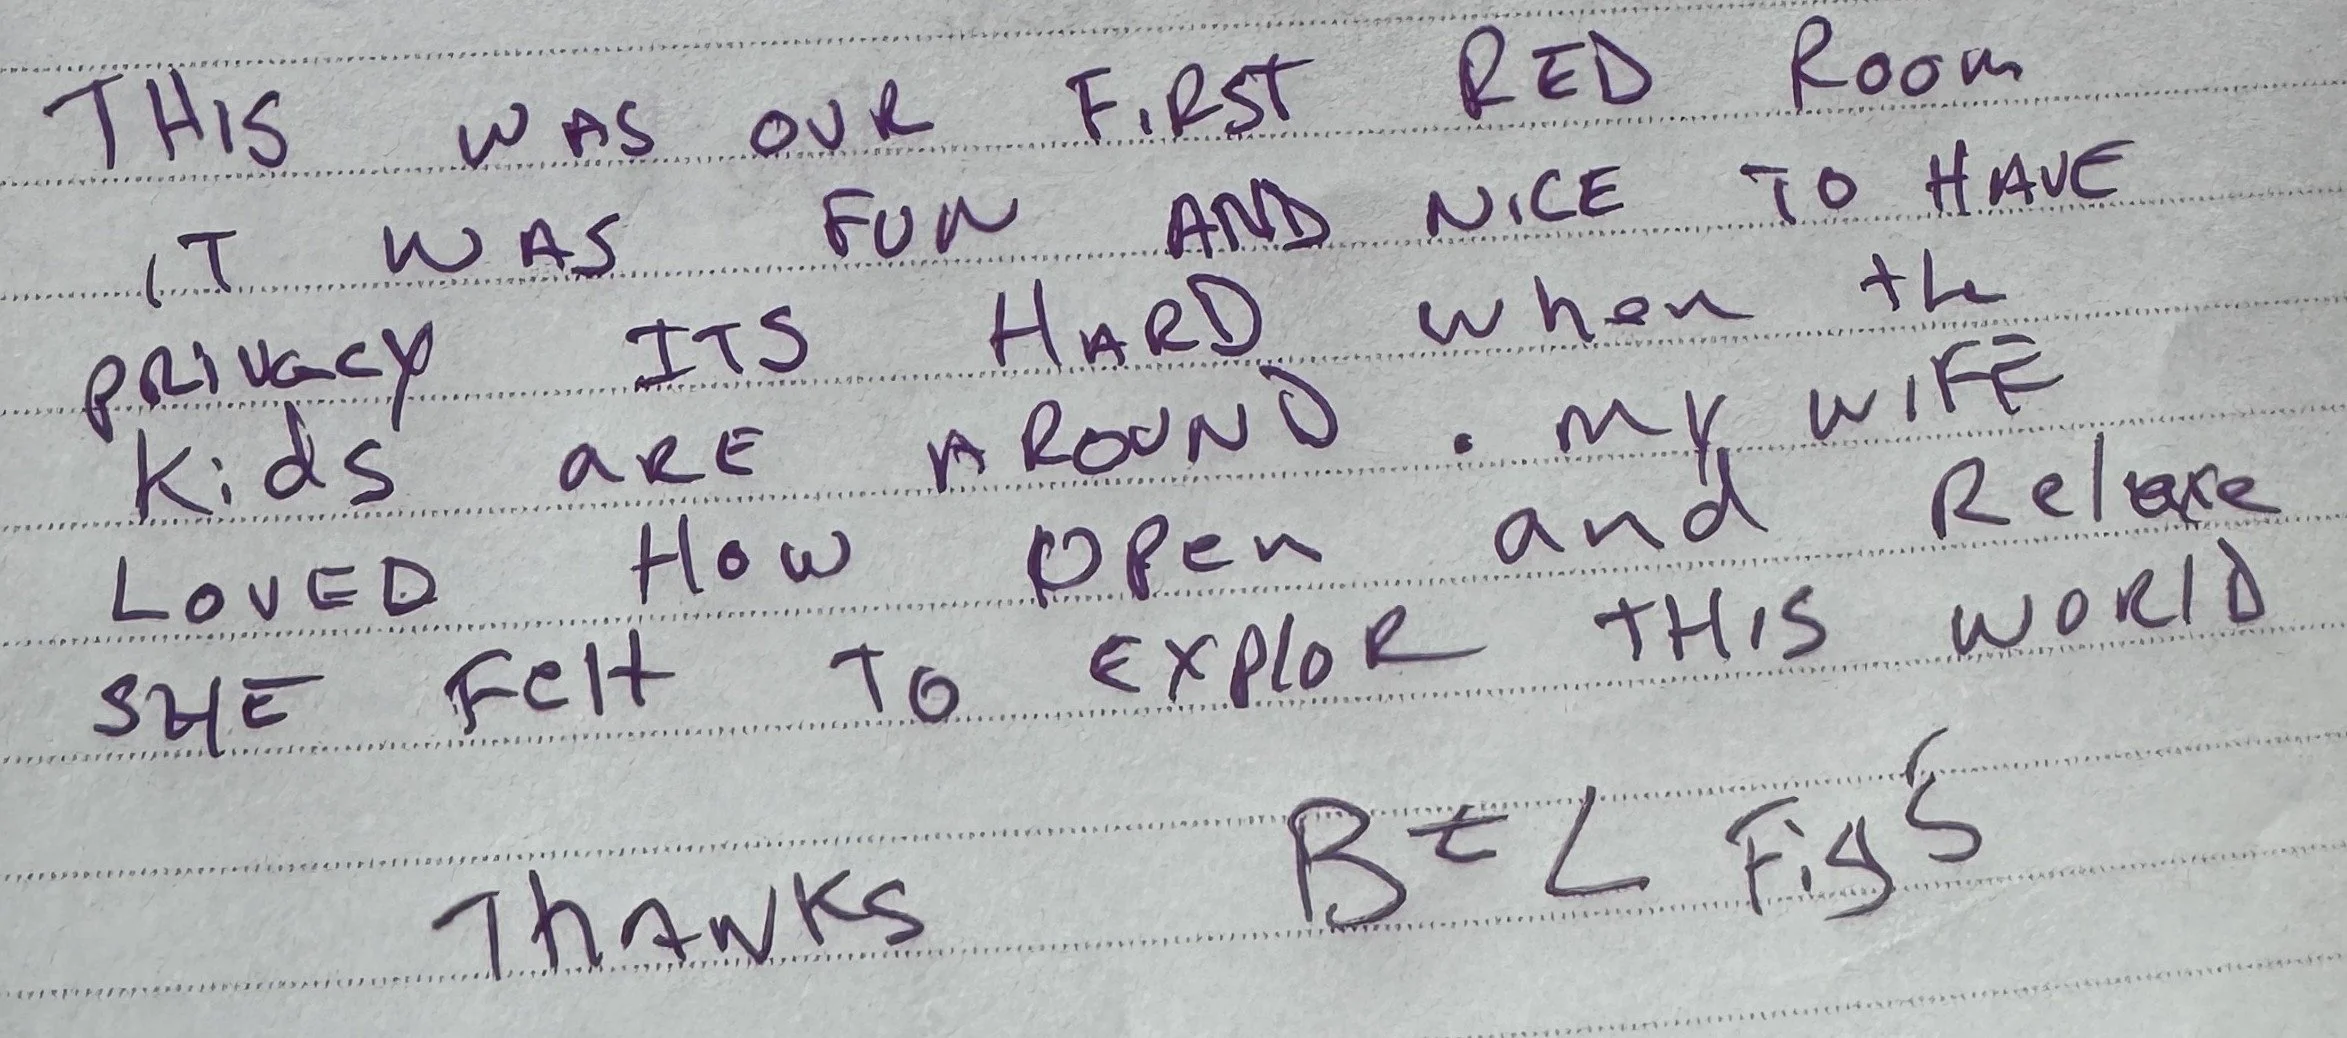 THIS WAS OUR FIRST RED ROOM
IT WAS FUN AND NICE TO HAVE
PRIVACY ITS HARD when the
Kids aRE AROUND . MY WIFE
LOVED HOW OPen and Relaxe
SHE Felt TO EXPloR THIS WORlD
THANKS B & L FigS